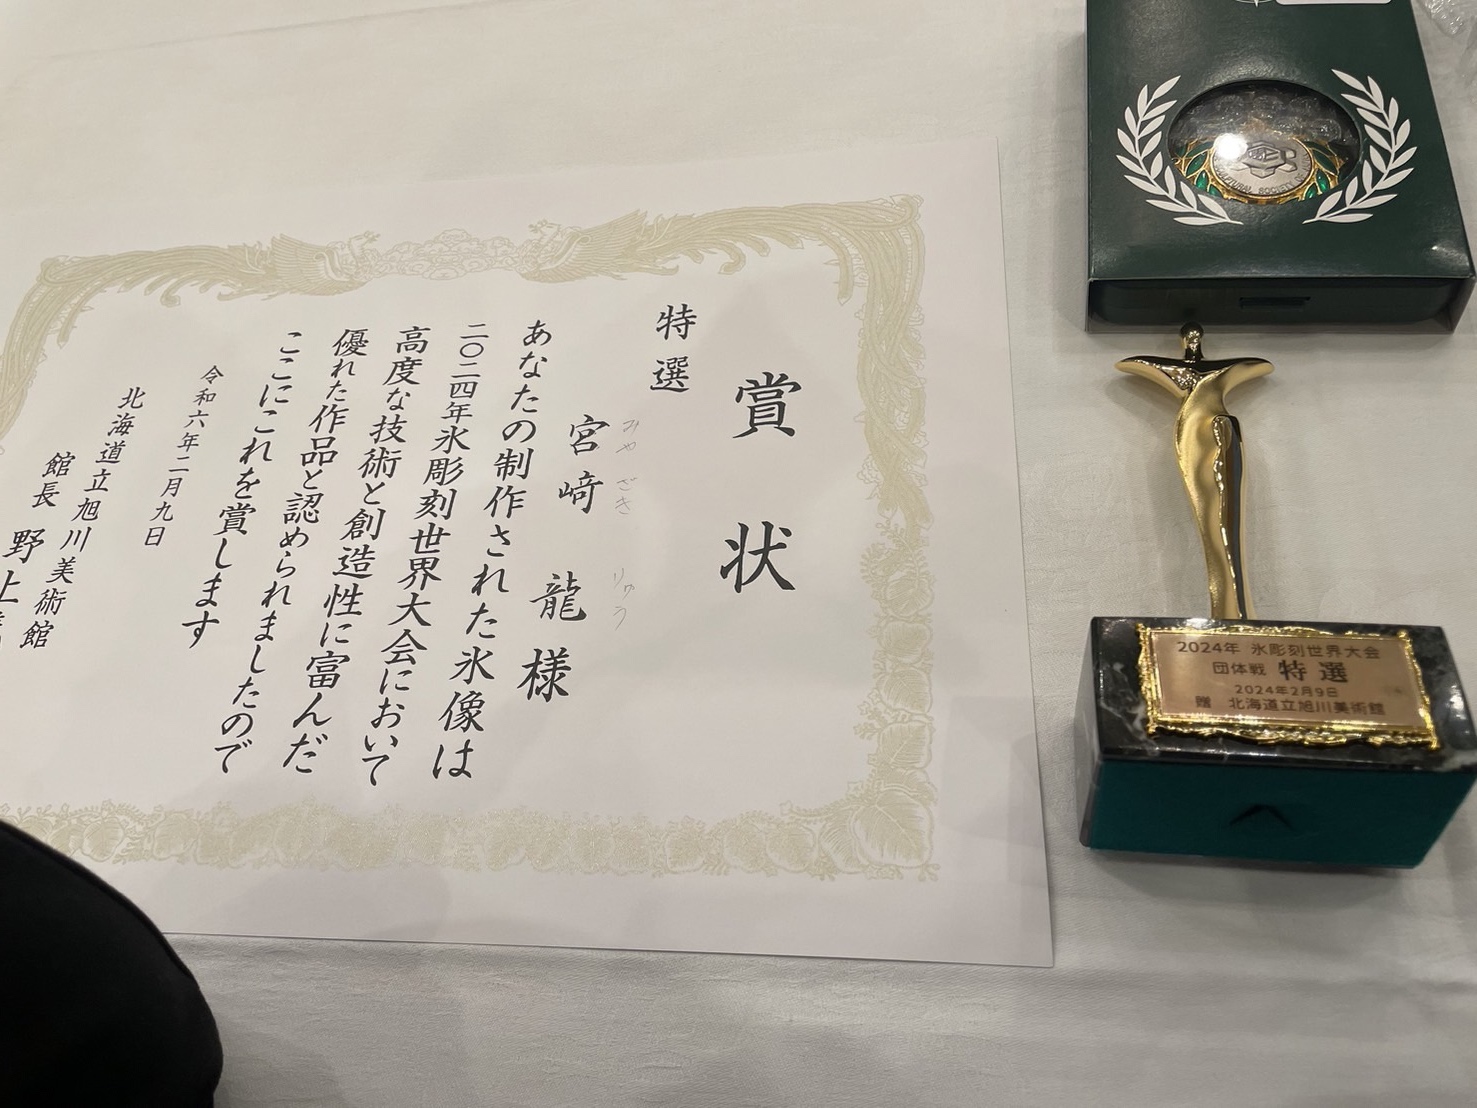 賞状
特選
宮﨑 龍様
みやざき りゅう
あなたの制作された氷像は
二〇二四年氷彫刻世界大会において
高度な技術と創造性に富んだ
優れた作品と認められましたので
ここにこれを賞します
令和六年二月九日
北海道立旭川美術館
館長 野上
2024年 氷彫刻世界大会
団体戦 特選
2024年2月9日
贈 北海道立旭川美術館
SOCIETY